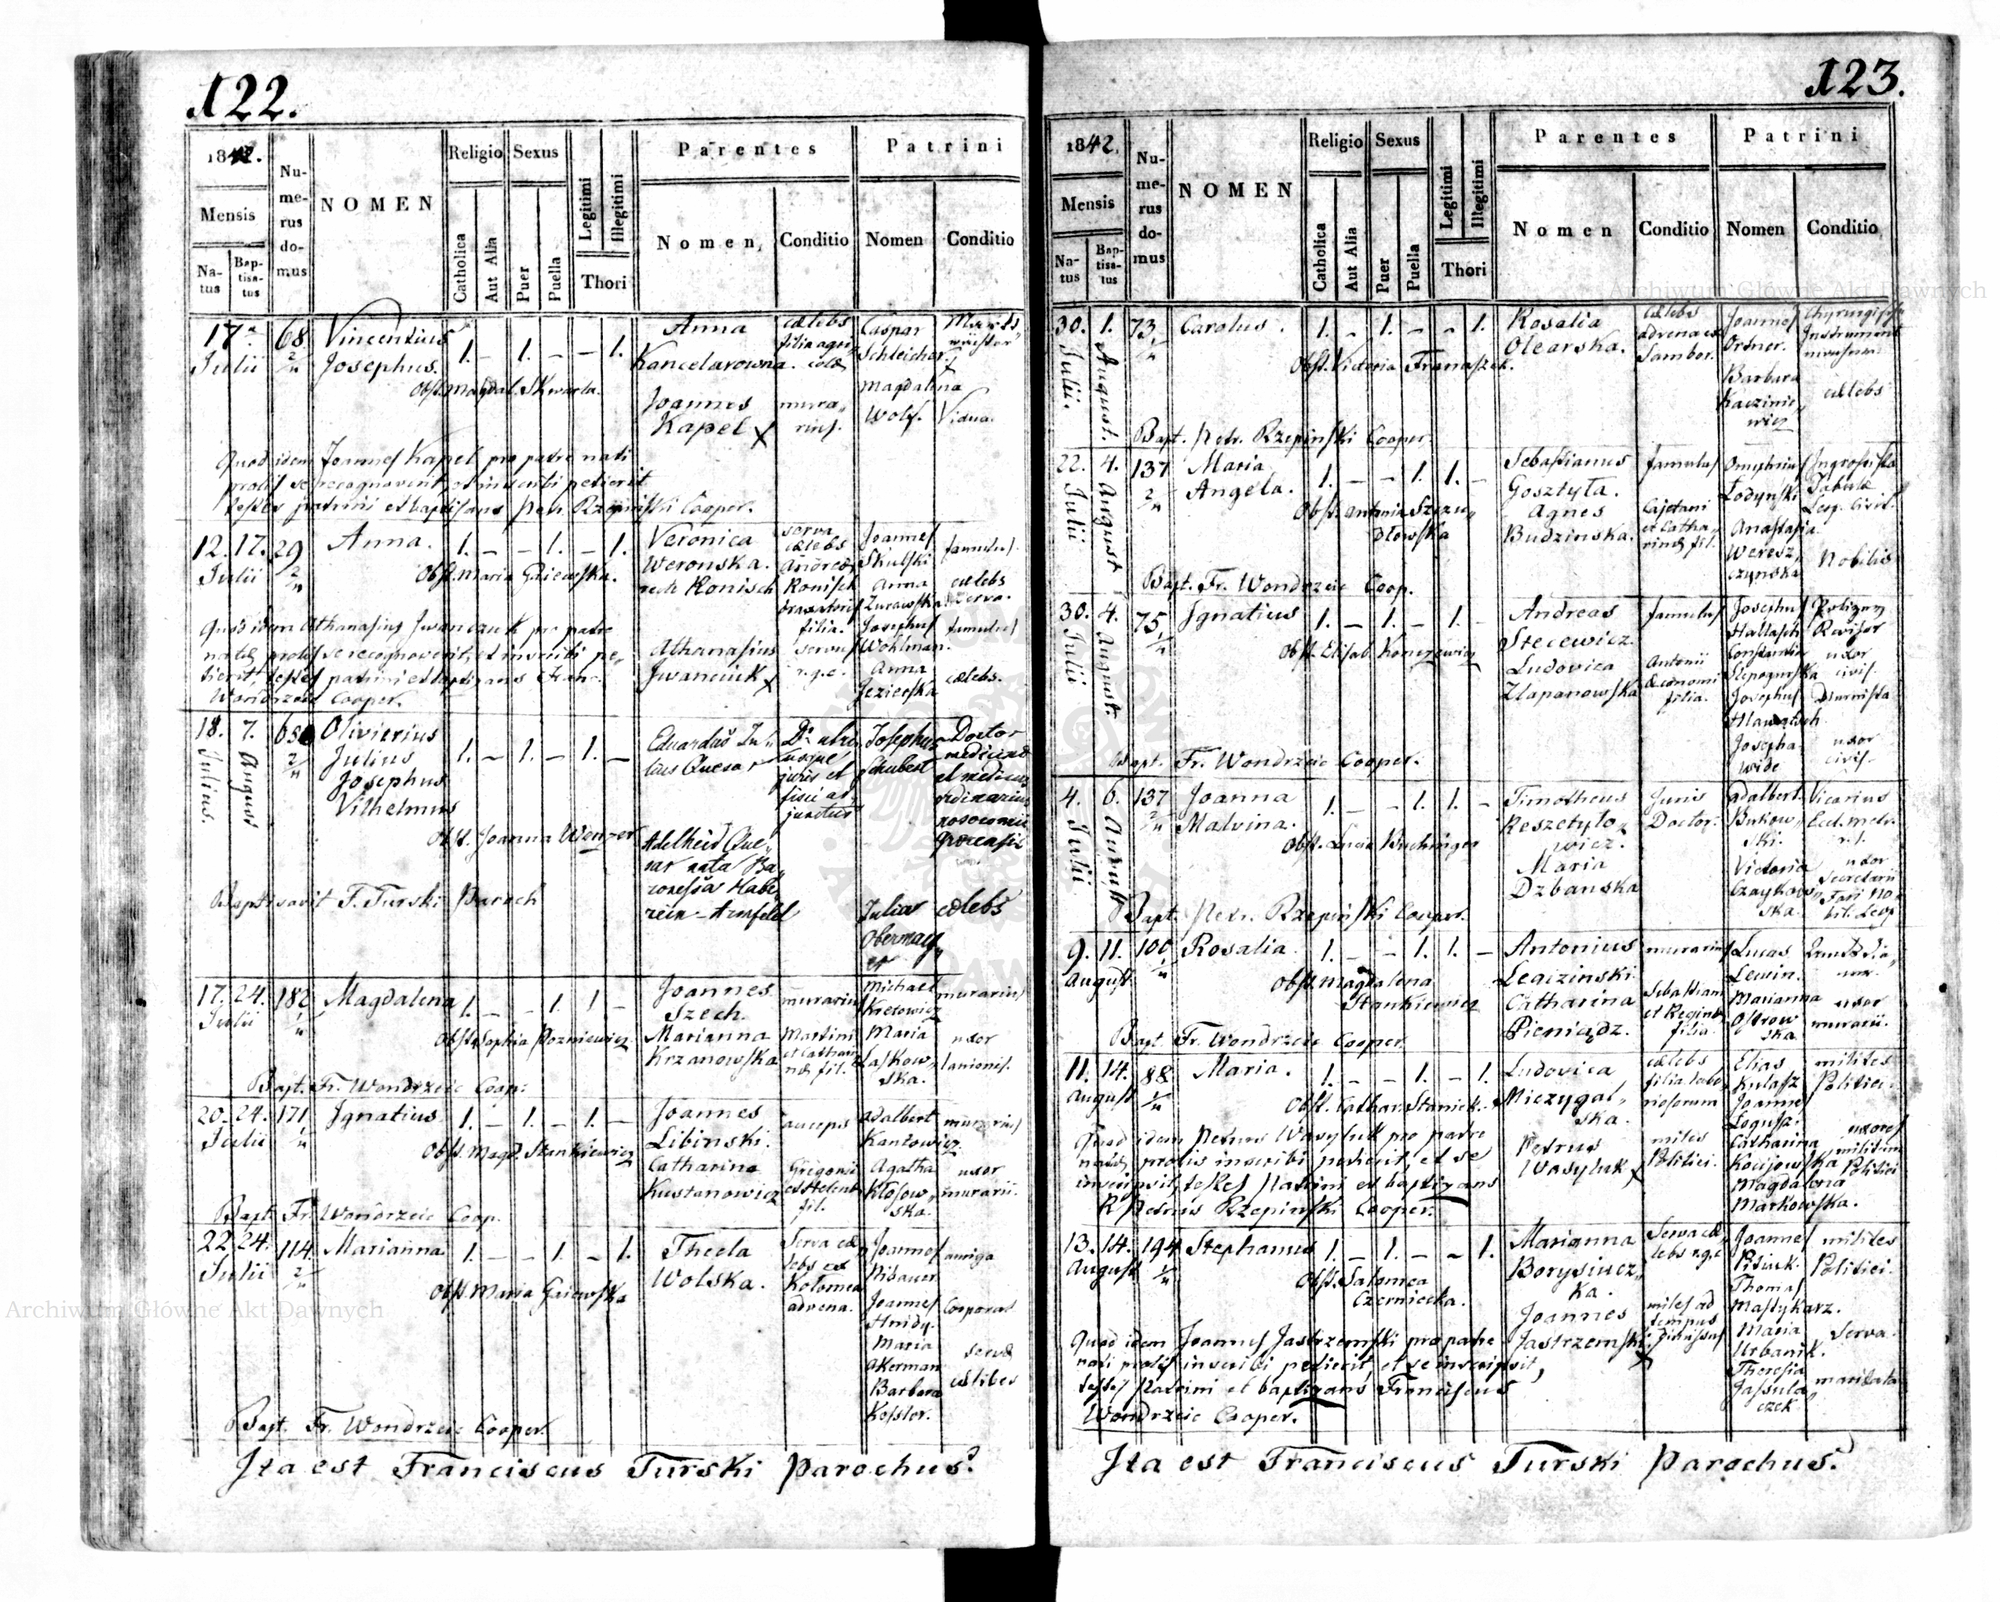 122.
1842.
Mensis
Na-
tus
Bap-
tisa-
tus
Nu-
me-
rus
do-
mus
NOMEN
Religio
Catholica
Aut Alia
Sexus
Puer
Puella
Legitimi
Illegitimi
Thori
Parentes
Nomen
Conditio
Patrini
Nomen
Conditio
17
Julii
68
2/4
Vincentius
Josephus.
1. – 1. – – 1.
Obst. Magdal. Skwarla.
Anna
Kancelarowna.
cælebs
filia agri
colæ
Joannes
Kapel x
mura,,
rius.
Caspar
Schleicher
Magdalena
Wolf.
Vidua.
Quod idem Joannes Kapel pro patre nati
prolis se recognoverit, et inscribi petierit
testes patrini et baptisans Petr. Rzepiński Cooper.
12. 17.
Julii
29
2/4
Anna.
1. – – 1. – 1.
Obst. Maria Gaiewska.
Veronica
Weronska.
recte Konisch
serva
cælebs
Andreæ
Konisch
filia.
Athanasius
Jwanciuk x
servus
r.g.c.
Joannes
Skulski
Anna
Zurawska
Josephus
Wohlman.
Anna
Jezierska
famulus.
cælebs
serva.
famulus
cælebs.
Quod idem Athanasius Jwanczuk pro patre
natæ prolis se recognoverit, et inscribi pe,,
tierit testes patrini et baptizans Franc.
Wondrzeic Cooper.
18.
Julius.
7.
August
650
2/4
Olivierius
Julius
Josephus
Vilhelmus
1. – 1. – 1. –
Obst. Joanna Wenzer
Eduardus Ju,,
lius Quesar
Dr. utri
usque
juris et
fisci ad,,
junctus
Adelheid Que,,
sar nata Ba,,
ronessa Habe
rein-Armfeld
Josephus
Schubert
Doctor
medicinæ
et medicus
ordinarius
nosocomii
Julia
Obermay,,
er
cælebs
Baptisavit F. Turski Paroch
17. 24.
Julii
182
1/4
Magdalena
1. – – 1. 1. –
Obst. Sophia Pozniewicz.
Joannes
Szech.
Marianna
Krzanowska
murarius
Martini
et Cathari
næ fil.
Michael
Kretowicz
Maria
Laskow,,
ska.
murarius
uxor
lanionis.
Bapt. Fr. Wondrzeic Coop.
20. 24.
Julii
171
1/4
Jgnatius
1. – 1. – 1. –
Obst. Magd. Stankiewicz
Joannes
Libinski.
Catharina
Kustanowicz
auceps
Gregorii
et Helenæ
fil.
Adalbert
Kantowicz
Agatha
Kłosow,,
ska.
murarius
uxor
murarii.
Bapt. Fr. Wondrzeic Coop.
22. 24.
Julii
114.
2/4
Marianna
1. – – 1. – 1.
Obst. Maria Gaiewska
Thecla
Wolska.
Serva cæ
lebs ex
Kołomea
advena.
Joannes
Nibauer
Joannes
Hnidy.
Maria
Akerman
Barbara
Kessler.
auriga
Corporal
servæ
cælibes
Bapt. Fr. Wondrzeic Cooper.
Jta est Franciscus Turski Parochus.
123.
1842.
Mensis
Na-
tus
Bap-
tisa-
tus
Nu-
me-
rus
do-
mus
NOMEN
Religio
Catholica
Aut Alia
Sexus
Puer
Puella
Legitimi
Illegitimi
Thori
Parentes
Nomen
Conditio
Patrini
Nomen
Conditio
30.
Julii.
1.
August.
73.
Carolus.
1. – 1. – – 1.
Obst. Victoria Franaszek.
Rosalia
Olearska.
cælebs
advena ex
Sambor.
Joannes
Ordner.
Barbara
Kaczinie,,
wicz
Chyrurgisch,,
Jnstrument
cælebs
Bapt. Petr. Rzepiński Cooper.
22.
Julii
4.
August
137
2/4
Maria
Angela.
1. – – 1. 1. –
Obst. Antonia Szczu,,
dłowska
Sebastianus
Gosztyła.
Agnes
Budzinska.
famulus
Cajetani
et Catha,,
rinæ fil.
Onuphrius
Łodyński
Anastasia
Weresz,,
czynska
Jngrossista
Tabulæ
Leop. Civit.
Nobilis
Bapt. Fr. Wondrzeic Coop.
30.
Julii
4.
August.
75
1/4
Jgnatius
1. – 1. – 1. –
Obst. Elisab. Konczewicz
Andreas
Stecewicz
Ludovica
Zlapanowska
famulus
Antonii
œconomi
filia.
Josephus
Hallasch
Constantia
Stepogurska
Josephus
Hlawatsch
Josepha
Wide
Polizey
Revisor
uxor
civis.
Diurnista
uxor
civis.
Bapt. Fr. Wondrzeic Cooper.
4.
Julii
6.
August
137
2/4
Joanna
Malvina.
1. – – 1. 1. –
Obst. Lucia Buchinger
Timotheus
Reszetyło,,
wicz.
Maria
Dzbanska
Juris
Doctor.
Adalbert.
Bukow,,
ski.
Victoria
Czaykow,,
ska.
Vicarius
Eccl. metr.
r. l.
uxor
Secretarii
Fori No
bil. Leop
Bapt. Petr. Rzepiński Cooper.
9. 11.
August
100
1/4
Rosalia.
1. – – 1. 1. –
Obst. Magdalena
Stankiewicz
Antonius
Leaczinski.
Catharina
Pieniądz.
murarius
Sebastiani
et Reginæ
filia.
Lucas
Lewin.
Marianna
Ostrow
ska.
uxor
murarii.
Bapt. Fr. Wondrzeic Cooper.
11. 14.
August
88
1/4
Maria.
1. – – 1. – 1.
Obst. Cathar. Staniek.
Ludovica
Miezygal,,
ska.
cælebs
filia labo,,
riosorum
Petrus
Wasyluk x
miles
Politici.
Elias
Kulasz
Joannes
Łogusz.
Catharina
Kocijowska
Magdalena
Markowska.
milites
Politici.
uxores
militum
Politici
Quod idem Petrus Wasyluk pro patre
natæ prolis inscribi petierit, et se
inscripsit, testes Patrini et baptizans
R Petrus Rzepiński Cooper.
13. 14.
August
194
1/4
Stephanus
1. – 1. – – 1.
Obst. Salomea
Czerniecka.
Marianna
Borysiwicz,,
ka.
Serva cæ
lebs r.g.c
Joannes
Jastrzemski x
miles ad
tempus
dimissus
Joannes
Pisiuk.
Thomas
Mastykarz.
Maria
Urbanik.
Theresia
Jassula,,
czek
milites
Politici.
Serva.
maritata
Quod idem Joannes Jastrzemski pro patre
nati prolis inscribi petierit, et se inscripsit,
testes Patrini et baptizans Franciscus
Wondrzeic Cooper.
Jta est Franciscus Turski Parochus.
Archiwum Główne Akt Dawnych
Archiwum Główne Akt Dawnych